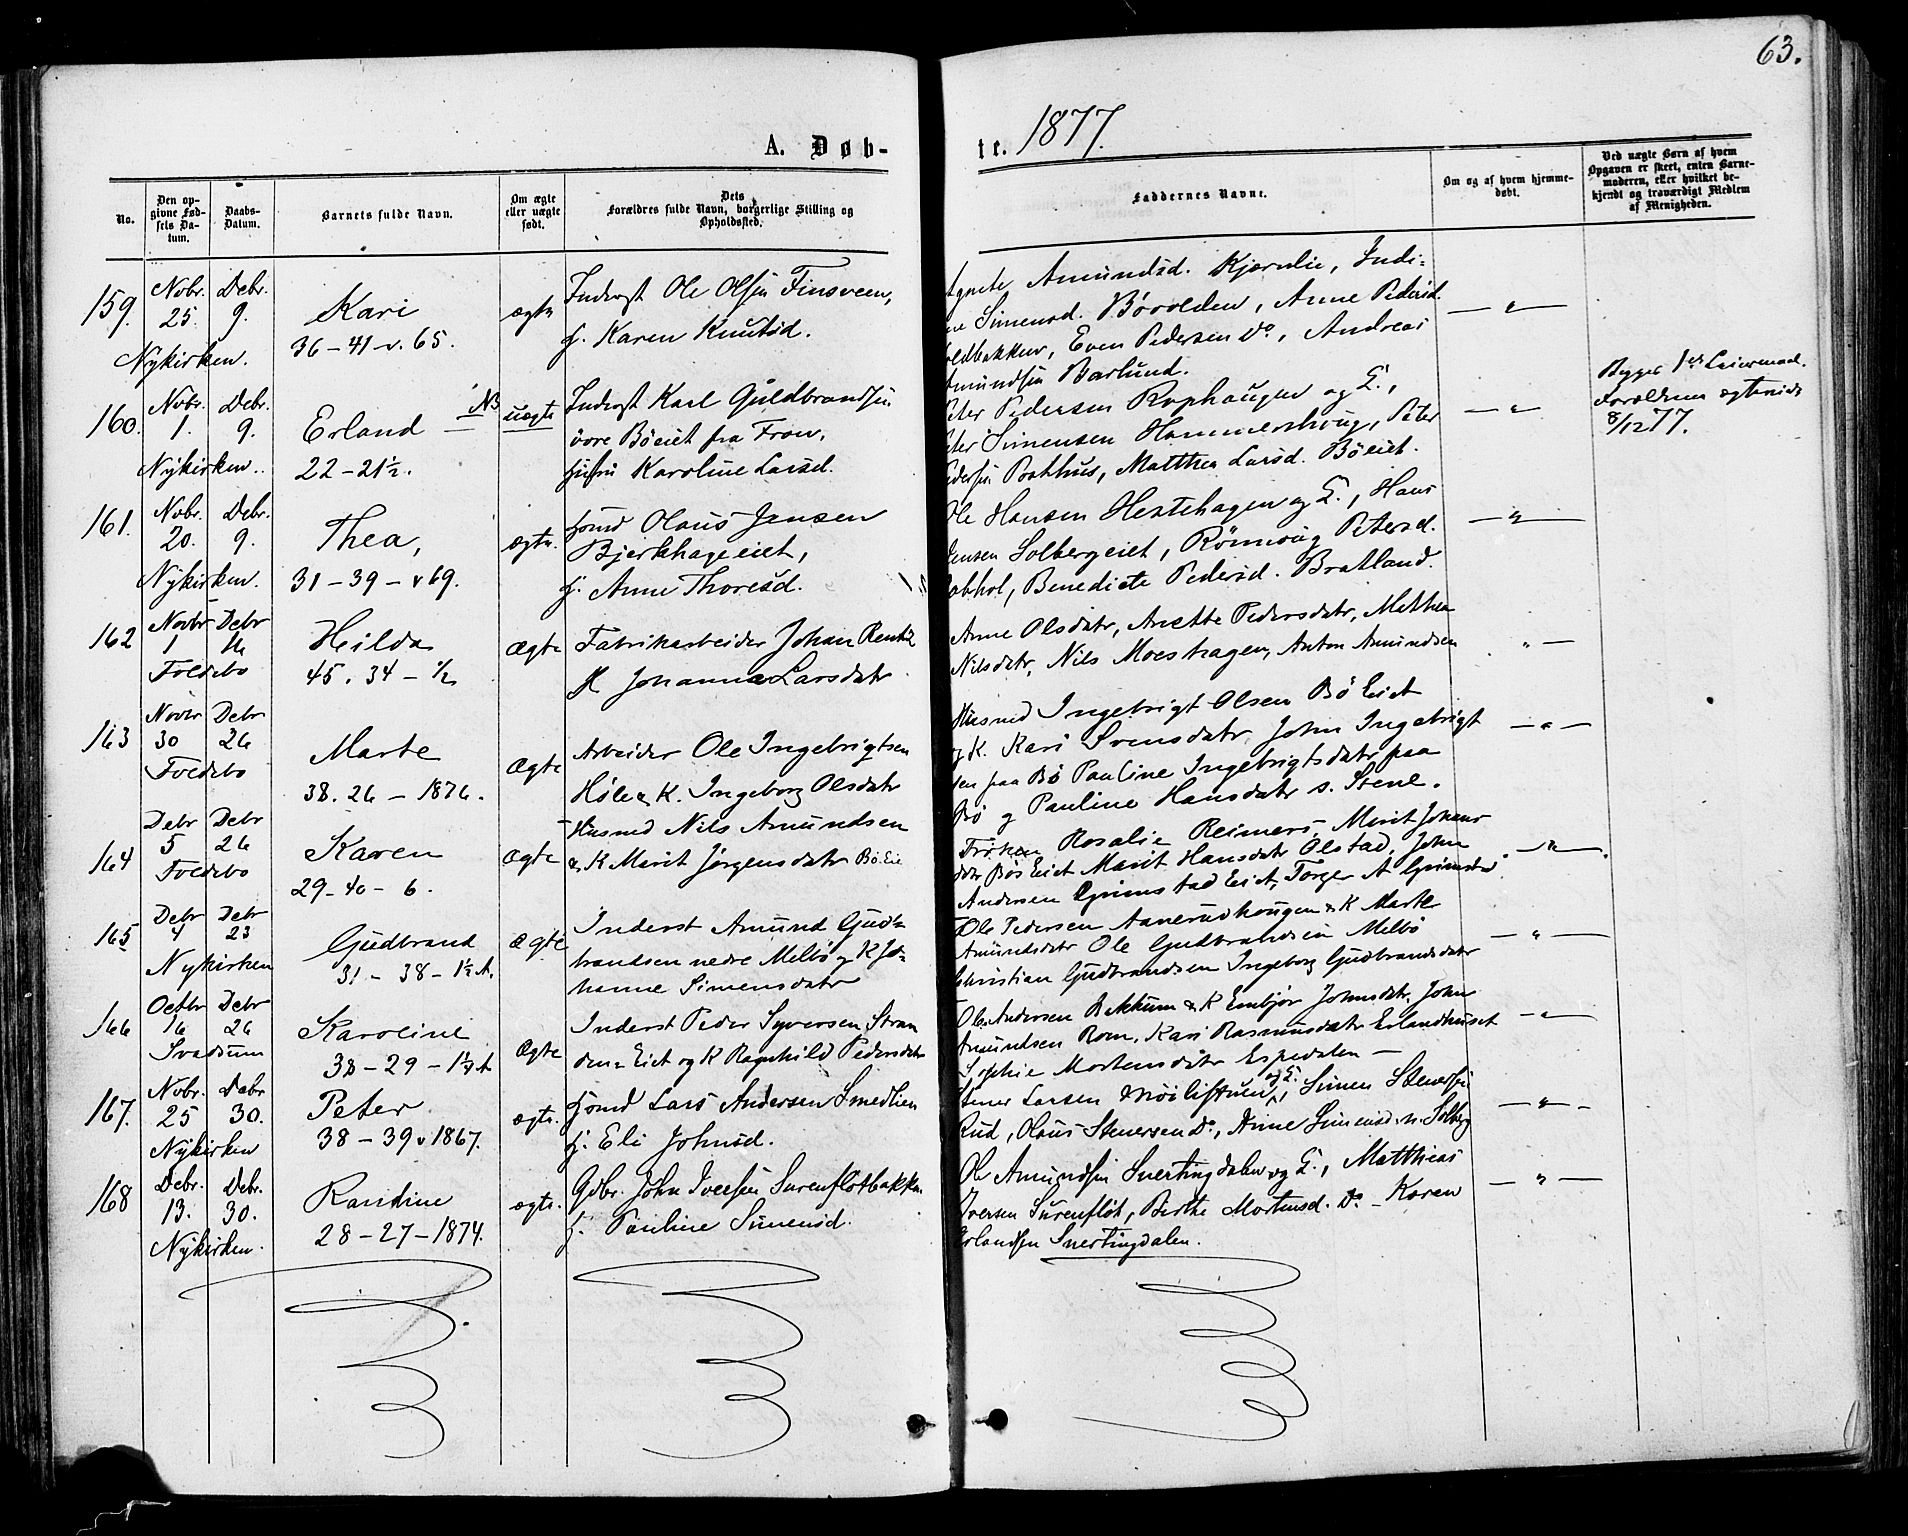 63.
A. Døb-
te. 1877.
No.
Den op-
givne Fød-
sels Da-
tum.
Daabs-
Datum.
Barnets fulde Navn.
Om ægte
eller uægte
født.
Dets
Forældres fulde Navn, borgerlige Stilling og
Opholdssted.
Faddernes Navne.
Om og af hvem hjemme-
døbt.
Ved uægte Børn af hvem
Opgaven er skeet, enten Barne-
moderen, eller hvilket be-
kjendt og troværdigt Medlem
af Menigheden.
159. Nobr. 25. Debr. 9.
Nykirken.
Kari
36 – 41 – v. 65.
ægte
Inderst Ole Olsen Finsveen,
H. Karen Knutsd.
Agnete Amundsd. Kjørnlie, Indi-
Simensd. Børolden, Anne Pedersd.
Even Pedersen Do, Andreas
Amundsen Barlund.
— " —
160. Nobr. 1. Debr. 9.
Nykirken.
Erland — NB
22 – 21½.
uægte
Inderst Karl Guldbrandsen
övre Böeiet fra Fron,
Karoline Larsd.
Peter Pedersen Rophaugen og E.,
Simensen Hammershoug, Peter
Matthea Larsd. Böeiet.
— " —
Begges 1ste Leiermaal.
Forældrene ægteviede
8/12 77.
161. Nobr. 20. Debr. 9.
Nykirken.
Thea,
31 – 39 – v 69.
ægte.
Hsmd Olaus Jensen
Bjerkhageeiet,
H. Anne Thoresd.
Ole Hansen Hestehagen og E., Hans
Jensen Solbergeiet, Rönnoug Petersd.
Benedicte Pedersd. Bratland.
— " —
162 Novbr 1 Debr 16
Foldebo
Hilda
45. 34 – ½
Ægte
Fabrikarbeider Johan Rentz
K Johanna Larsdatr
Anne Olsdatr, Anette Pedersdatr, Mathea
Nilsdatr, Nils Moeshagen, Anton Amundsen
" —
163 Novbr 30 Debr 26
Foldebo
Marte
38. 26 – 1876.
Ægte
Arbeider Ole Ingebrigtsen
Höle & K. Ingeborg Olsdatr
Husmd Ingebrigt Olsen Bö Eiet
og K. Kari Svensdatr, John Ingebrigt
sen paa Bö Pauline Ingebrigtsdatr paa
Bö og Pauline Hansdatr s. Stene.
— " —
164 Debr 5 Debr 26
Foldebo
Karen
29 – 40 – 6.
Ægte
Husmd Nils Amundsen
& K Marit Jörgensdatr Bö.Eie
Fröken Rosalie Reimers, Marit Johans
datr Bös Eiet Marit Hansdatr Olstad, John
Andersen Grimstad Eiet, Torger A Grimsta
— " —
165 Debr 4 Debr 23
Nykirken
Gudbrand
31 – 38 – 1½ A.
Ægte
Inderst Amund Gud-
brandsen nedre Melbö og K Jo-
hanne Simensdatr
Ole Pedersen Aanerudhougen & K Marte
Amundsdatr Ole Gudbrandsen Melbö
Christian Gudbrandsen Ingeborg Gudbrandsdatr
— " —
166 Octbr 16 Debr 26
Svadsum
Karoline
38 – 29 – 1¼ A
Ægte
Inderst Peder Syversen Stran
den = Eiet og K Ragnhild Pedersdatr
Ole Andersen Bekkum & K Embjör Johnsdatr, John
Amundsen Rom, Kari Rasmusdatr Erlandhuset
Sophie Mortensdatr Espedalen —
— " —
167. Nobr. 25 Debr 30.
Nykirken
Peter
38 – 39 v 1867.
ægte.
Hsmd Lars Andersen Smedlien
H. Eli Johnsd.
Stener Larsen og E., Simen Stenersen
Rud, Olaus Stenersen Do, Anne Simensd. n. Solberg
— " —
168 Debr. 13. Debr. 30.
Nykirken.
Randine
28 – 27 – 1874.
ægte.
Gdbr. John Iversen Surenflötbakken
H. Pauline Simensd.
Ole Amundsen Snertingdalen og E., Matthias
Iversen Surenflöt, Birthe Mortensd. Do – Karen
Erlandsen Snertingdalen.
— " —